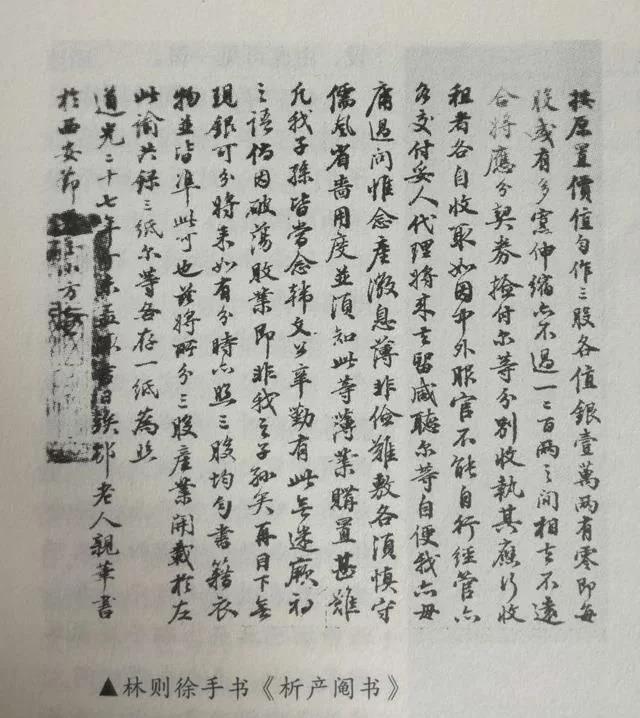 按原置價值勻作三股各值銀壹萬兩有零即每
股或有多寡伸縮亦不過一二百兩之間相去不遠
合將應分契券撿付尔等分別收執其應行收
租者各自收取如因中外服官不能自行經管亦
各交付妥人代理將來去留咸聽尔等自便我亦毋
庸過問惟念產微息薄非儉難敷各須慎守
儒風省嗇用度並須知此等薄業購置甚難
凡我子孫皆當念韓文公辛勤有此無迷厥初
之語倘因破蕩敗業即非我之子孫矣再目下無
現銀可分將來如有分時亦照三股均勻書籍衣
物並皆準此可也茲將所分三股產業開載於左
此諭共錄三紙尔等各存一紙為照
道光二十七年未孟日竢邨老人親筆書
於西安節小方
▲林则徐手书《析产阄书》